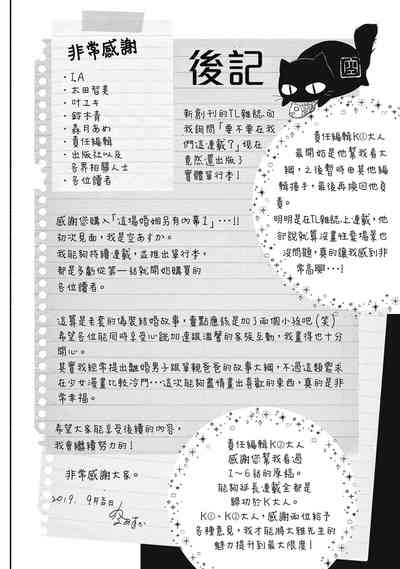 非常感謝
・IA
・太田智美
・叶ユキ
・鈴卡青
・森月あめ
・責任編輯
・出版社以及
各界相關人士
・各位讀者
後記
空
新創刊的TL雜誌向
我詢問「要不要在我
們這連載了」現在
竟然還出版了
實體單行本！
責任編輯K①大人
最開始是他幫我看大
綱，之後暫時由其他編
輯接手，最後再換回他負
責。
明明是在TL雜誌上連載，他
卻說就算沒畫性愛場景也
沒問題，真的讓我感到非
常高興…！
感謝您購入「這場婚姻另有內幕1」…!!
初次見面，我是空あすか。
我能夠持續連載，並推出單行本，
都是多虧從第一話就開始購買的
各位讀者。
這算是老套的偽裝結婚故事，重點應該是加了兩個小孩吧（笑）
希望各位能同時享受心跳加速跟溫馨的家族互動，我畫得也十分
開心。
其實我經常提出離婚男子跟單親爸爸的故事大綱，不過這類需求
在少女漫畫比較冷門…這次能夠盡情畫出喜歡的東西，真的是非
常幸福。
希望大家能享受後續的內容，
我會繼續努力的！
非常感謝大家。
2019. 9月吉日
責任編輯K②大人
感謝您幫我看過
1～6話的原稿。
能夠延長連載全都是
歸功於K大人。
K①、K②大人，感謝兩位給予
各種意見，我才能將大雅先生的
魅力提升到最大限度！